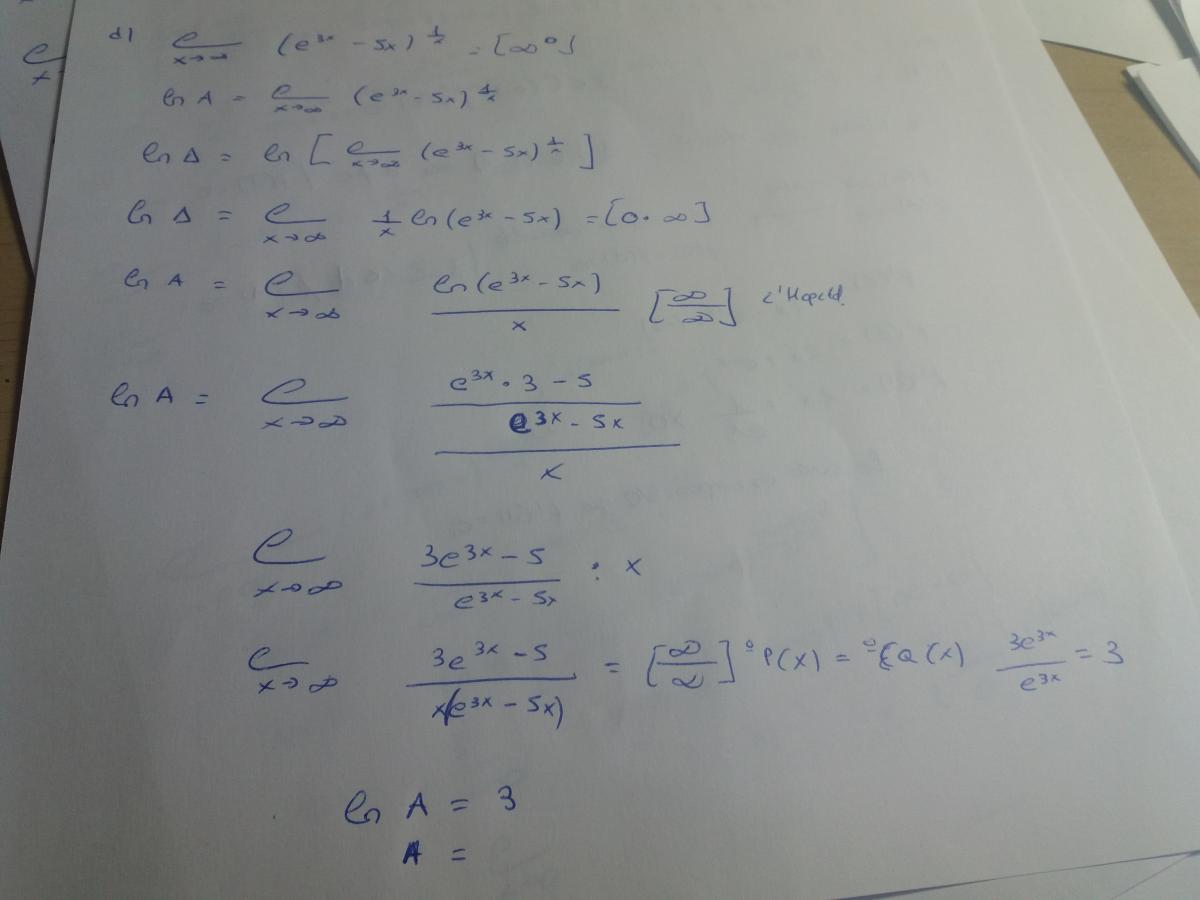 d) ℓ x→∞ (e^3x - 5x)^1/x = [∞^0]
ln A = ℓ x→∞ (e^3x - 5x)^1/x
ln A = ln [ ℓ x→∞ (e^3x - 5x)^1/x ]
ln A = ℓ x→∞ 1/x ln(e^3x - 5x) = [0·∞]
ln A = ℓ x→∞ ln(e^3x - 5x) / x [∞/∞] L'Hopital.
ln A = ℓ x→∞ e^3x · 3 - 5 / e^3x - 5x / x
ℓ x→∞ 3e^3x - 5 / e^3x - 5x : x
ℓ x→∞ 3e^3x - 5 / x(e^3x - 5x) = [∞/∞] º P(x) = º Q(x) 3e^3x / e^3x = 3
ln A = 3
A =